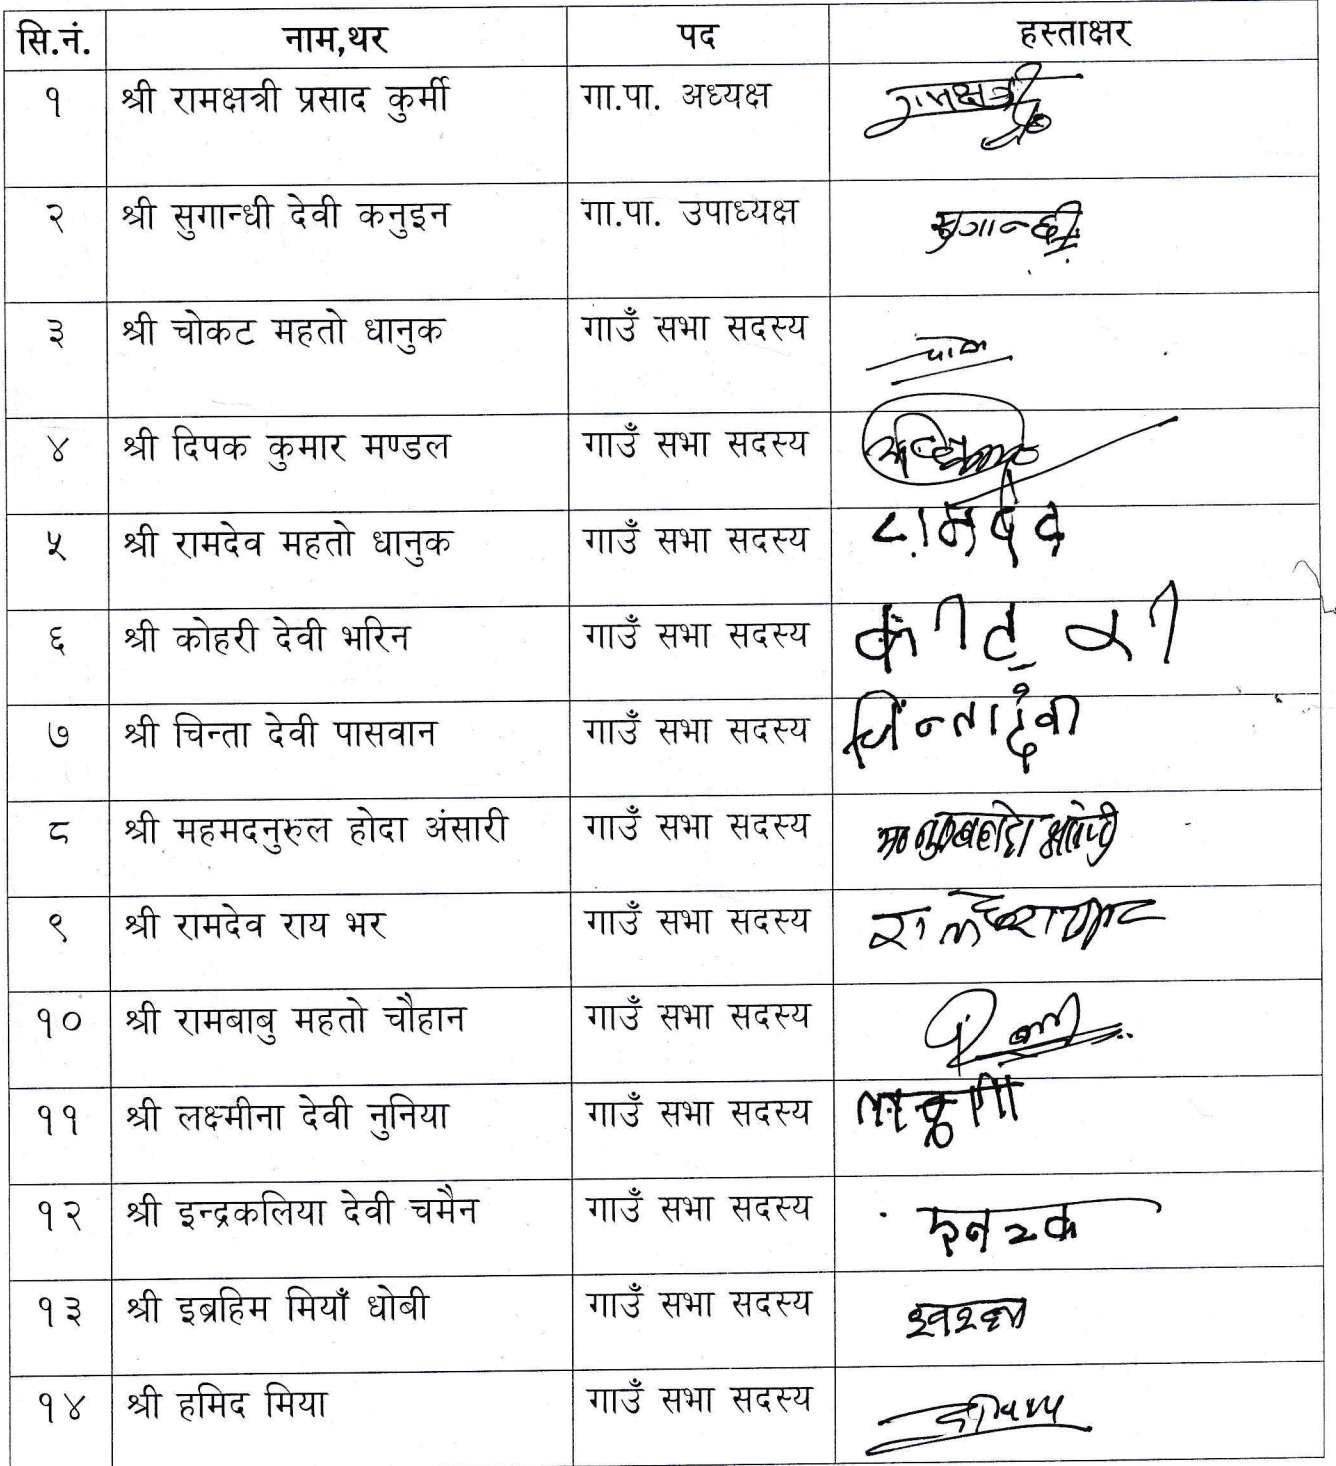 सि.नं. नाम,थर पद हस्ताक्षर
१ श्री रामक्षत्री प्रसाद कुर्मी गा.पा. अध्यक्ष रामक्षत्री
२ श्री सुगान्धी देवी कनुइन गा.पा. उपाध्यक्ष सुगान्धी
३ श्री चोकट महतो धानुक गाउँ सभा सदस्य
४ श्री दिपक कुमार मण्डल गाउँ सभा सदस्य
५ श्री रामदेव महतो धानुक गाउँ सभा सदस्य
६ श्री कोहरी देवी भरिन गाउँ सभा सदस्य
७ श्री चिन्ता देवी पासवान गाउँ सभा सदस्य चिन्ता देवी
८ श्री महमदनुरुल होदा अंसारी गाउँ सभा सदस्य
९ श्री रामदेव राय भर गाउँ सभा सदस्य
१० श्री रामबाबु महतो चौहान गाउँ सभा सदस्य
११ श्री लक्ष्मीना देवी नुनिया गाउँ सभा सदस्य
१२ श्री इन्द्रकलिया देवी चमैन गाउँ सभा सदस्य
१३ श्री इब्रहिम मियाँ धोबी गाउँ सभा सदस्य
१४ श्री हमिद मिया गाउँ सभा सदस्य